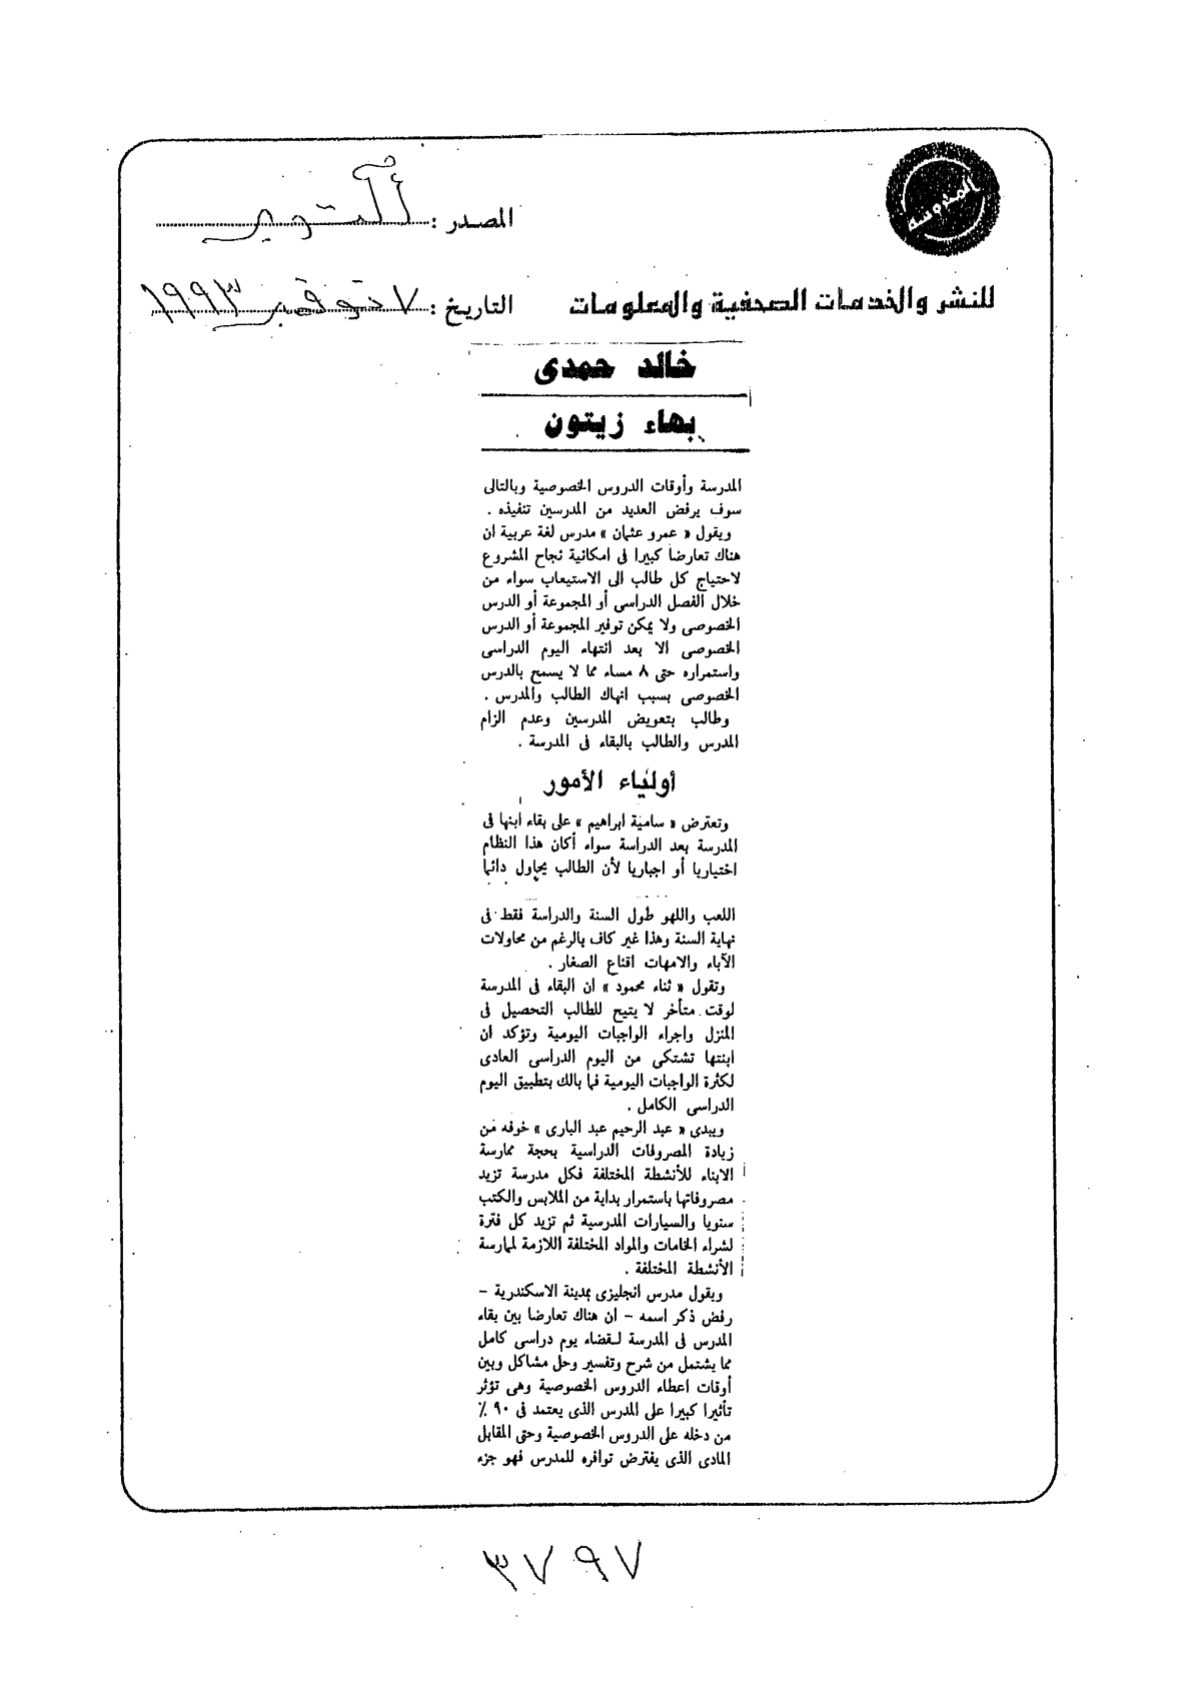 المدوسة
المصدر : أكتوبر
للنشر والخدمات الصحفية والمعلومات
التاريخ : ٧ نوفمبر ١٩٩٣
خالد حمدى
بهاء زيتون
المدرسة وأوقات الدروس الخصوصية وبالتالى
سوف يرفض العديد من المدرسين تنفيذه .
ويقول « عمرو عثمان » مدرس لغة عربية ان
هناك تعارضا كبيرا فى امكانية نجاح المشروع
لاحتياج كل طالب الى الاستيعاب سواء من
خلال الفصل الدراسى أو المجموعة أو الدرس
الخصوصى ولا يمكن توفير المجموعة أو الدرس
الخصوصى الا بعد انتهاء اليوم الدراسى
واستمراره حتى ٨ مساء مما لا يسمح بالدرس
الخصوصى بسبب انهاك الطالب والمدرس .
وطالب بتعويض المدرسين وعدم الزام
المدرس والطالب بالبقاء فى المدرسة .
أولياء الأمور
وتعترض « سامية ابراهيم » على بقاء ابنها فى
المدرسة بعد الدراسة سواء أكان هذا النظام
اختياريا أو اجباريا لأن الطالب يحاول دائما
اللعب واللهو طول السنة والدراسة فقط فى
نهاية السنة وهذا غير كاف بالرغم من محاولات
الآباء والامهات اقناع الصغار .
وتقول « ثناء محمود » ان البقاء فى المدرسة
لوقت متأخر لا يتيح للطالب التحصيل فى
المنزل واجراء الواجبات اليومية وتؤكد ان
ابنتها تشتكى من اليوم الدراسى العادى
لكثرة الواجبات اليومية فما بالك بتطبيق اليوم
الدراسى الكامل .
ويبدى « عبد الرحيم عبد البارى » خوفه من
زيادة المصروفات الدراسية بحجة ممارسة
الابناء للأنشطة المختلفة فكل مدرسة تزيد
مصروفاتها باستمرار بداية من الملابس والكتب
سنويا والسيارات المدرسية ثم تزيد كل فترة
لشراء الخامات والمواد المختلفة اللازمة لممارسة
الأنشطة المختلفة .
ويقول مدرس انجليزى بمدينة الاسكندرية –
رفض ذكر اسمه – ان هناك تعارضا بين بقاء
المدرس فى المدرسة لقضاء يوم دراسى كامل
مما يشتمل من شرح وتفسير وحل مشاكل وبين
أوقات اعطاء الدروس الخصوصية وهى تؤثر
تأثيرا كبيرا على المدرس الذى يعتمد فى ٩٠ ٪
من دخله على الدروس الخصوصية وحتى المقابل
المادى الذى يفترض توافره للمدرس فهو جزء
٣٧٩٧